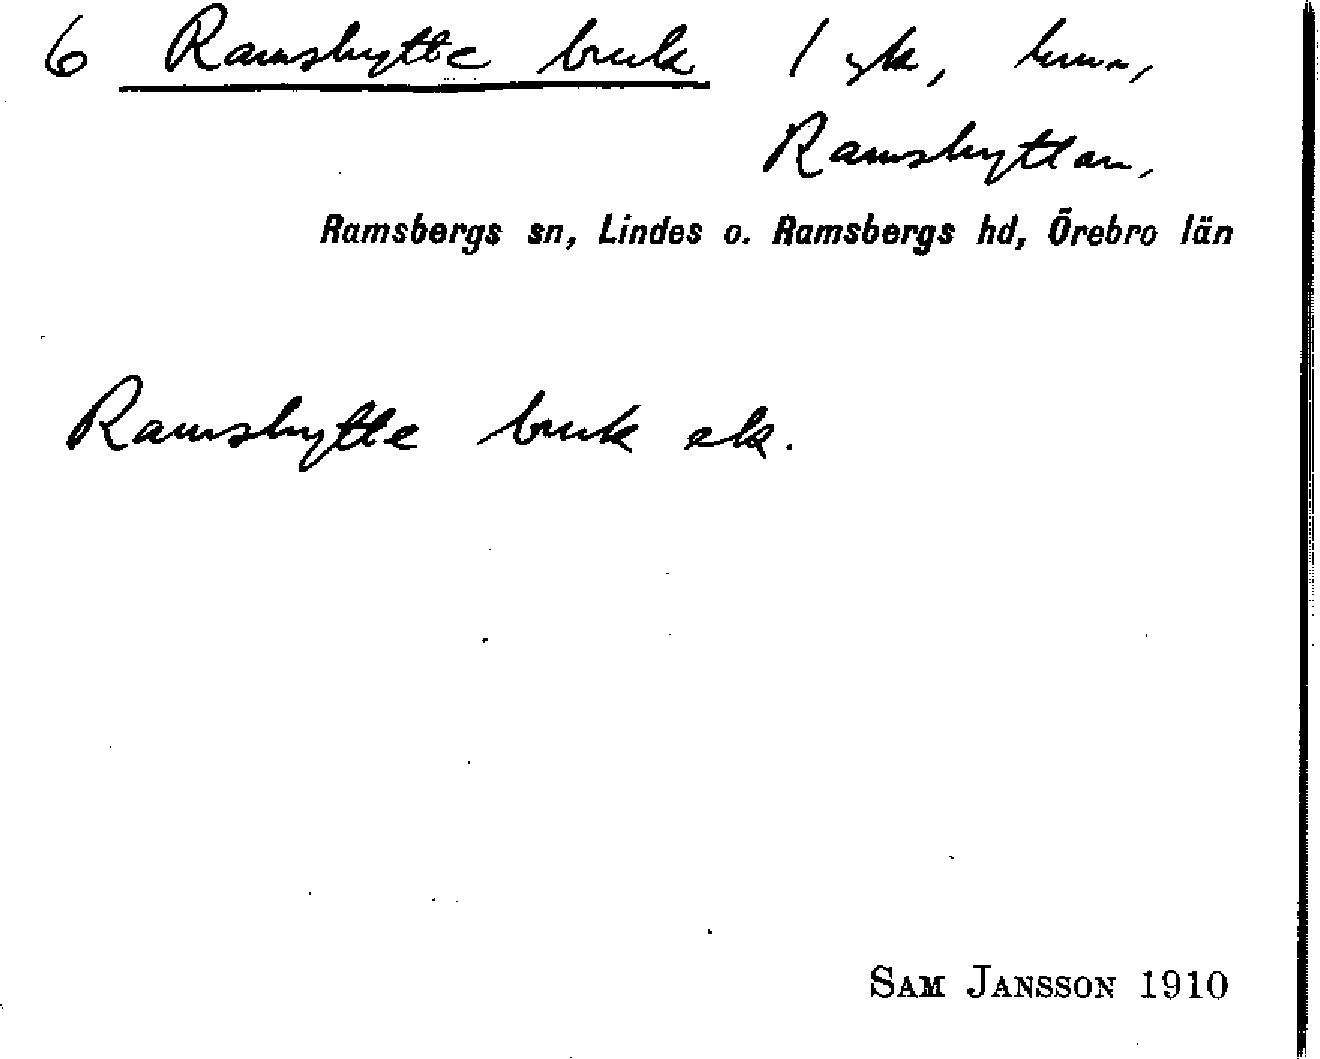 6 Ramshytte bruk
Ramshyttan,
Ramsbergs sn, Lindes o. Ramsbergs hd, Örebro län
Ramshytte bruk ek.
SAM JANSSON 1910